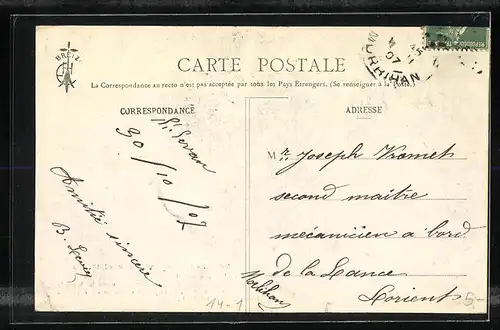 BREIZ
CARTE POSTALE
La Correspondance au recto n'est pas acceptée par tous les Pays Etrangers. (Se renseigner à la Poste.)
MORBIHAN
07
CORRESPONDANCE
St Servan
30/10/07
Amitié sincère
B.
ADRESSE
Mr. Joseph
second maître
mécanicien a bord
de la Lance
Lorient
Morbihan
14-1
5-